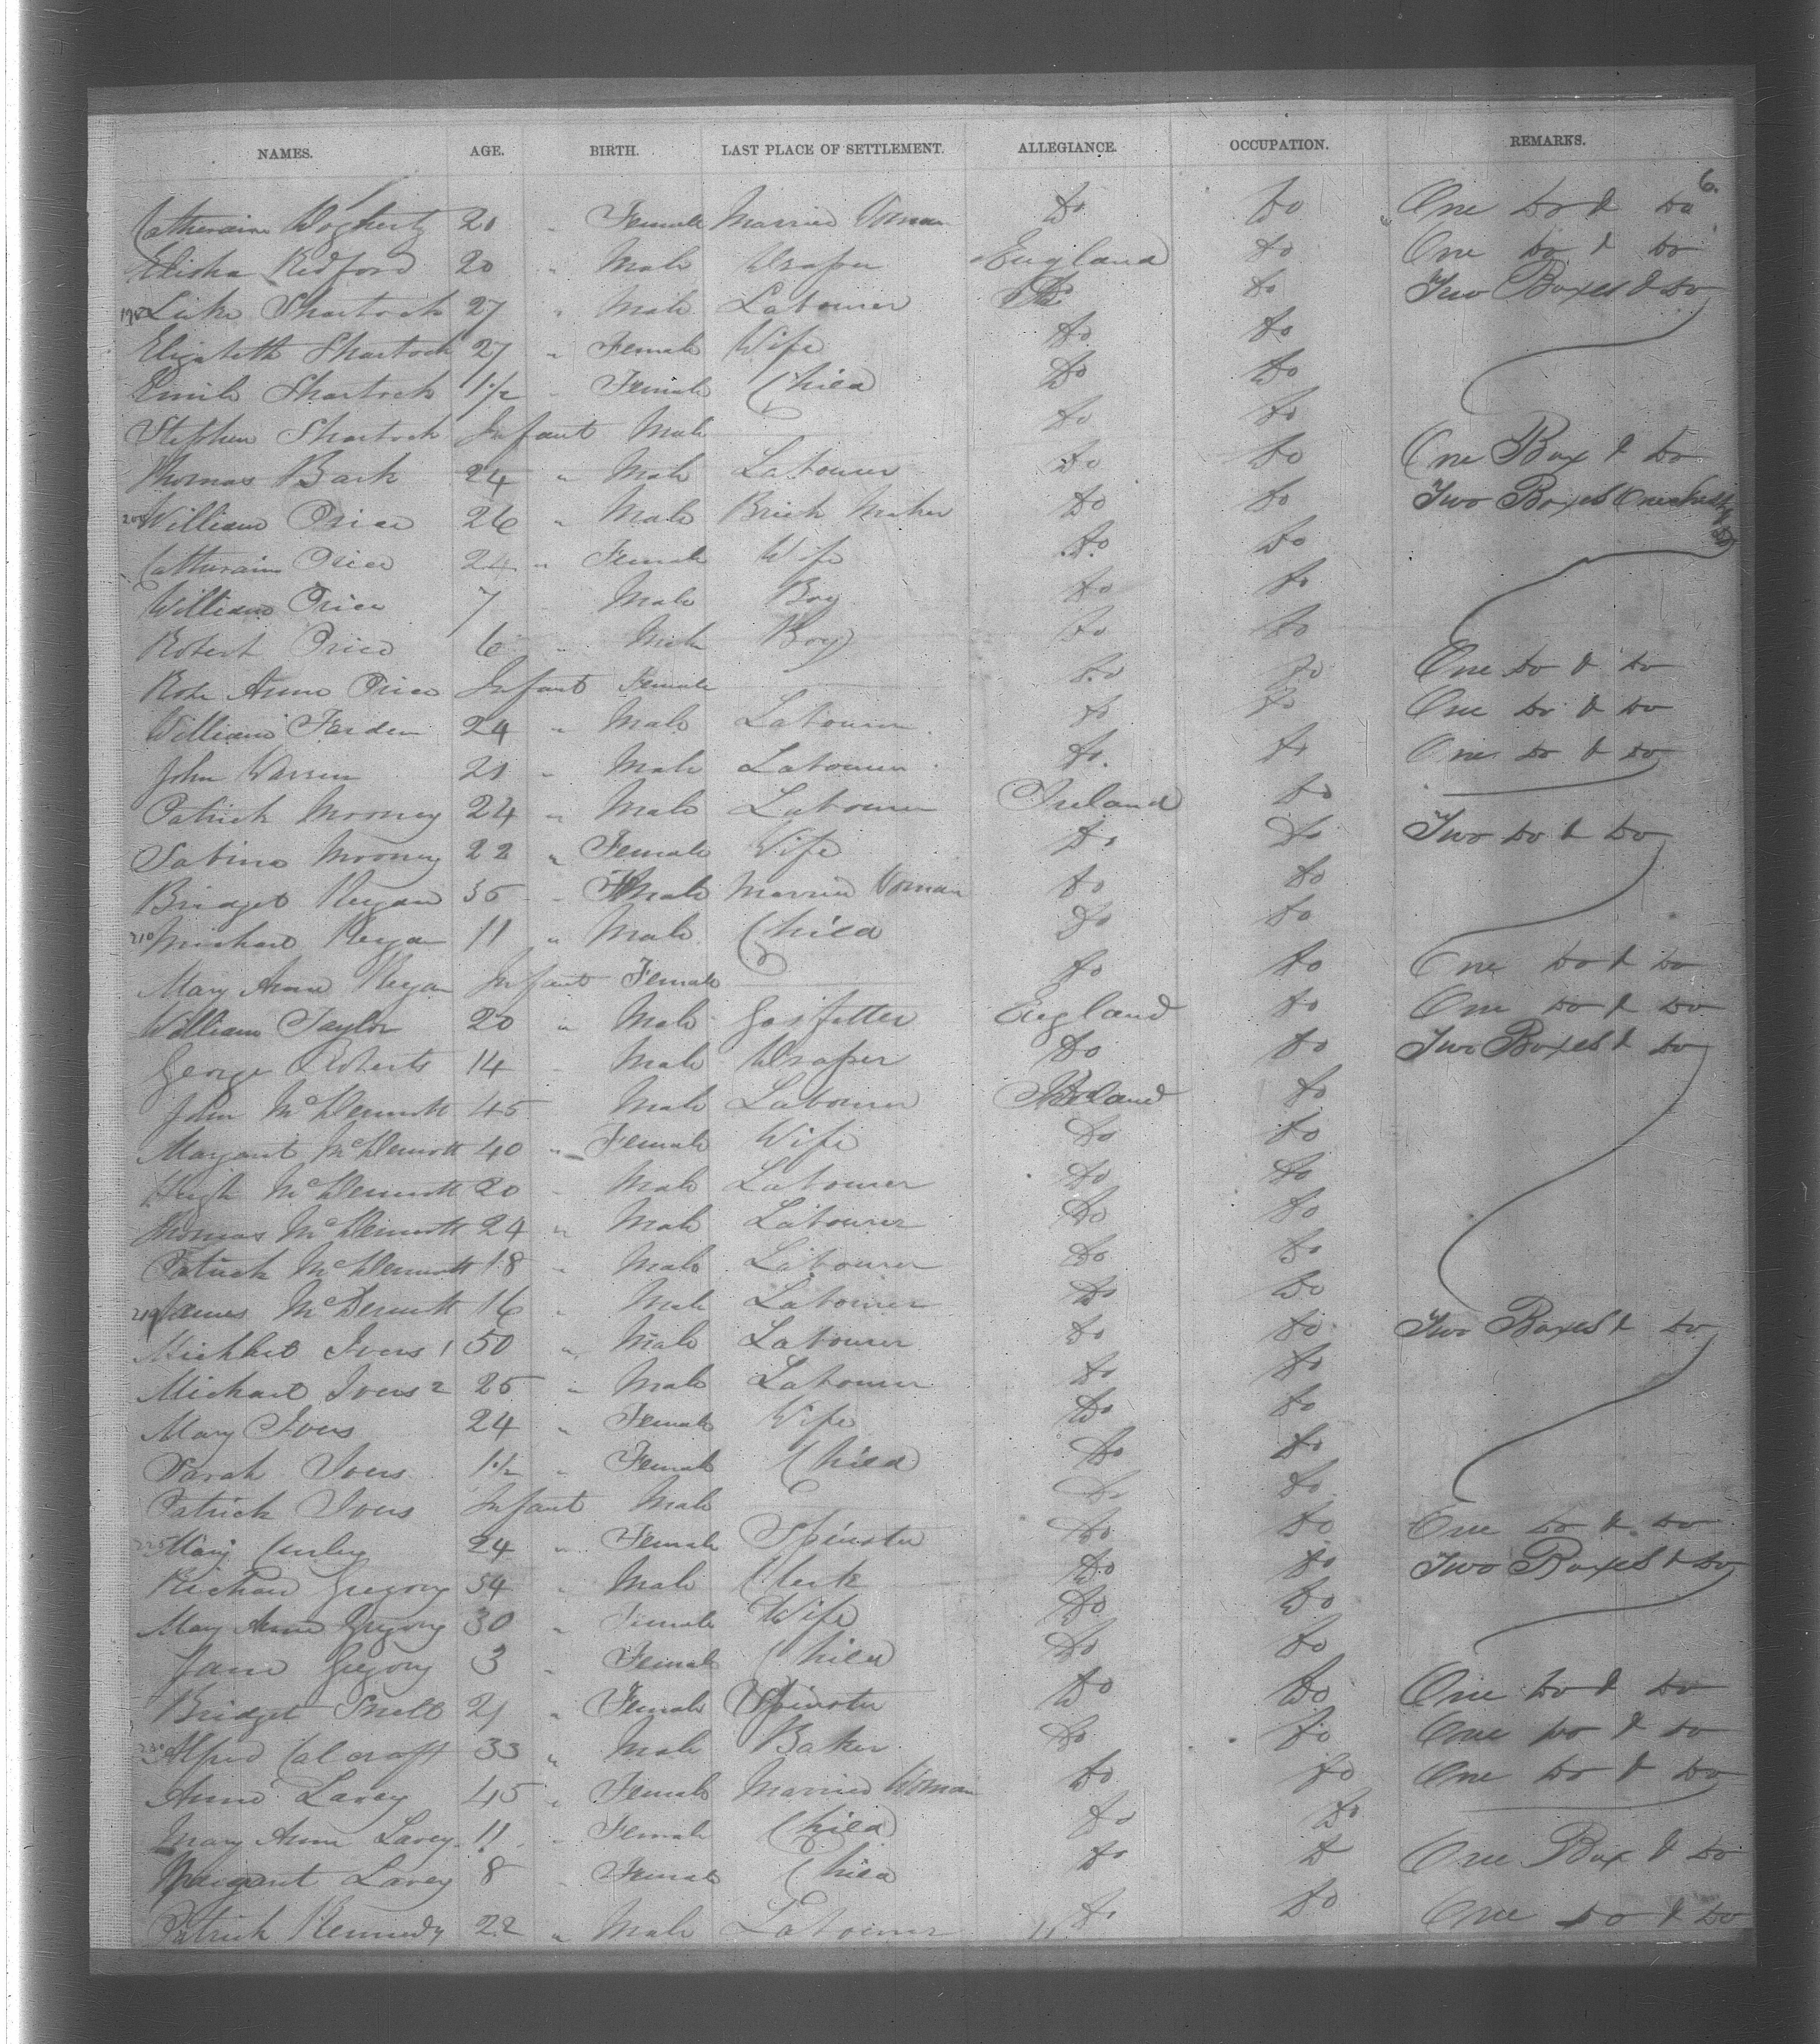 NAMES. AGE. BIRTH. LAST PLACE OF SETTLEMENT. ALLEGIANCE. OCCUPATION. REMARKS.
6.
Catheraine Dogherty 20 " Female Married Woman Do Do One Do & Do
Elisha Redford 20 " Male Draper England Do One Do & Do
Luke Shartock 27 " Male Labourer Do Do Two Boxes & Do
Elizabeth Shartock 27 " Female Wife Do Do
Emile Shartock 1 1/2 " Female Child Do Do
Stephen Shartock Infant Male Do Do
Thomas Bark 24 " Male Labourer Do Do One Box & Do
William Price 26 " Male Brick Maker Do Do Two Boxes One
Catheraine Price 24 " Female Wife Do Do
William Price 7 " Male Boy Do Do
Robert Price 6 " Male Boy Do Do
Rose Anne Price Infant Female Do Do One Do & Do
William Farden 24 " Male Labourer Do Do One Do & Do
John Warren 21 " Male Labourer Do Do One Do & Do
Patrick Mooney 24 " Male Labourer Ireland Do
Sabina Mooney 22 " Female Wife Do Do Two Do & Do
Bridget Regan 35 " Female Married Woman Do Do
210 Michael Regan 11 " Male Child Do Do
Mary Anne Regan Infant Female Do Do One Do & Do
William Taylor 20 " Male Gasfitter England Do One Do & Do
George Roberts 14 " Male Draper Do Do Two Boxes & Do
John McDermott 45 Male Labourer Ireland Do
Margaret McDermott 40 " Female Wife Do Do
Hugh McDermott 20 " Male Labourer Do Do
Thomas McDermott 24 " Male Labourer Do Do
Patrick McDermott 18 " Male Labourer Do Do
James McDermott 16 " Male Labourer Do Do
Michael Ivers 1 50 " Male Labourer Do Do Two Boxes & Do
Michael Ivers 2 25 " Male Labourer Do Do
Mary Ivers 24 " Female Wife Do Do
Sarah Ivers 1 1/2 " Female Child Do Do
Patrick Ivers Infant Male Do Do
225 Mary Curley 24 " Female Spinster Do Do One Do & Do
Richard Gregory 34 " Male Clerk Do Do Two Boxes & Do
Mary Anne Gregory 30 " Female Wife Do Do
Jane Gregory 3 " Female Child Do Do
Bridget Snell 21 " Female Spinster Do Do One Do & Do
230 Alfred Calcraft 33 " Male Baker Do Do One Do & Do
Anne Lavey 45 " Female Married Woman Do Do One Do & Do
Mary Anne Lavey 11 " Female Child Do Do
Margaret Lavey 8 " Female Child Do Do One Box & Do
Patrick Kennedy 22 " Male Labourer Do Do One Do & Do